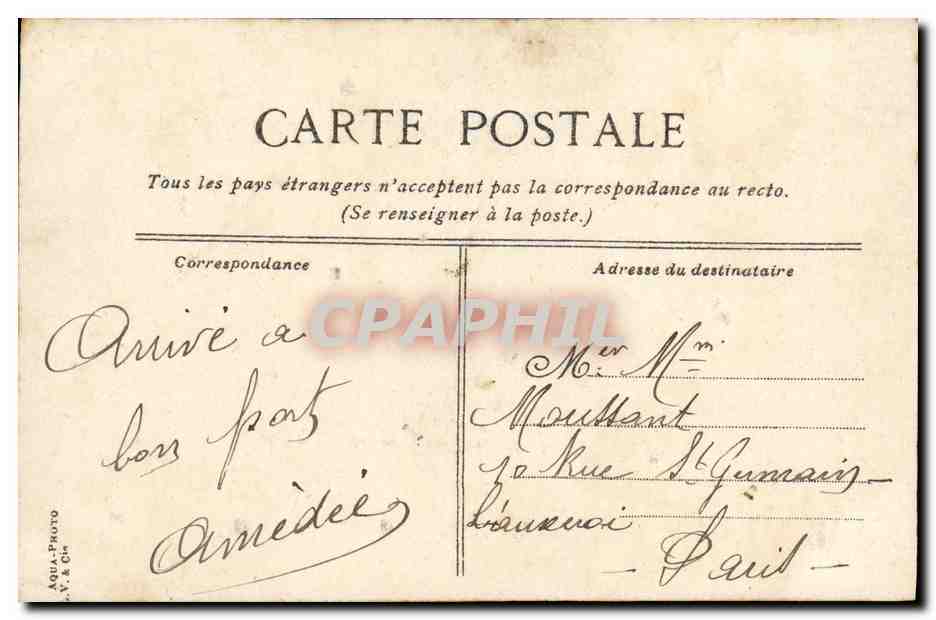 CARTE POSTALE
Tous les pays étrangers n'acceptent pas la correspondance au recto.
(Se renseigner à la poste.)
Correspondance
Adresse du destinataire
CPAPHIL
Arrivé a
bon port
Amédée
Mer Mm
Moussant
10 Rue St Germain
Paris
AQUA-PHOTO
V. & Cie